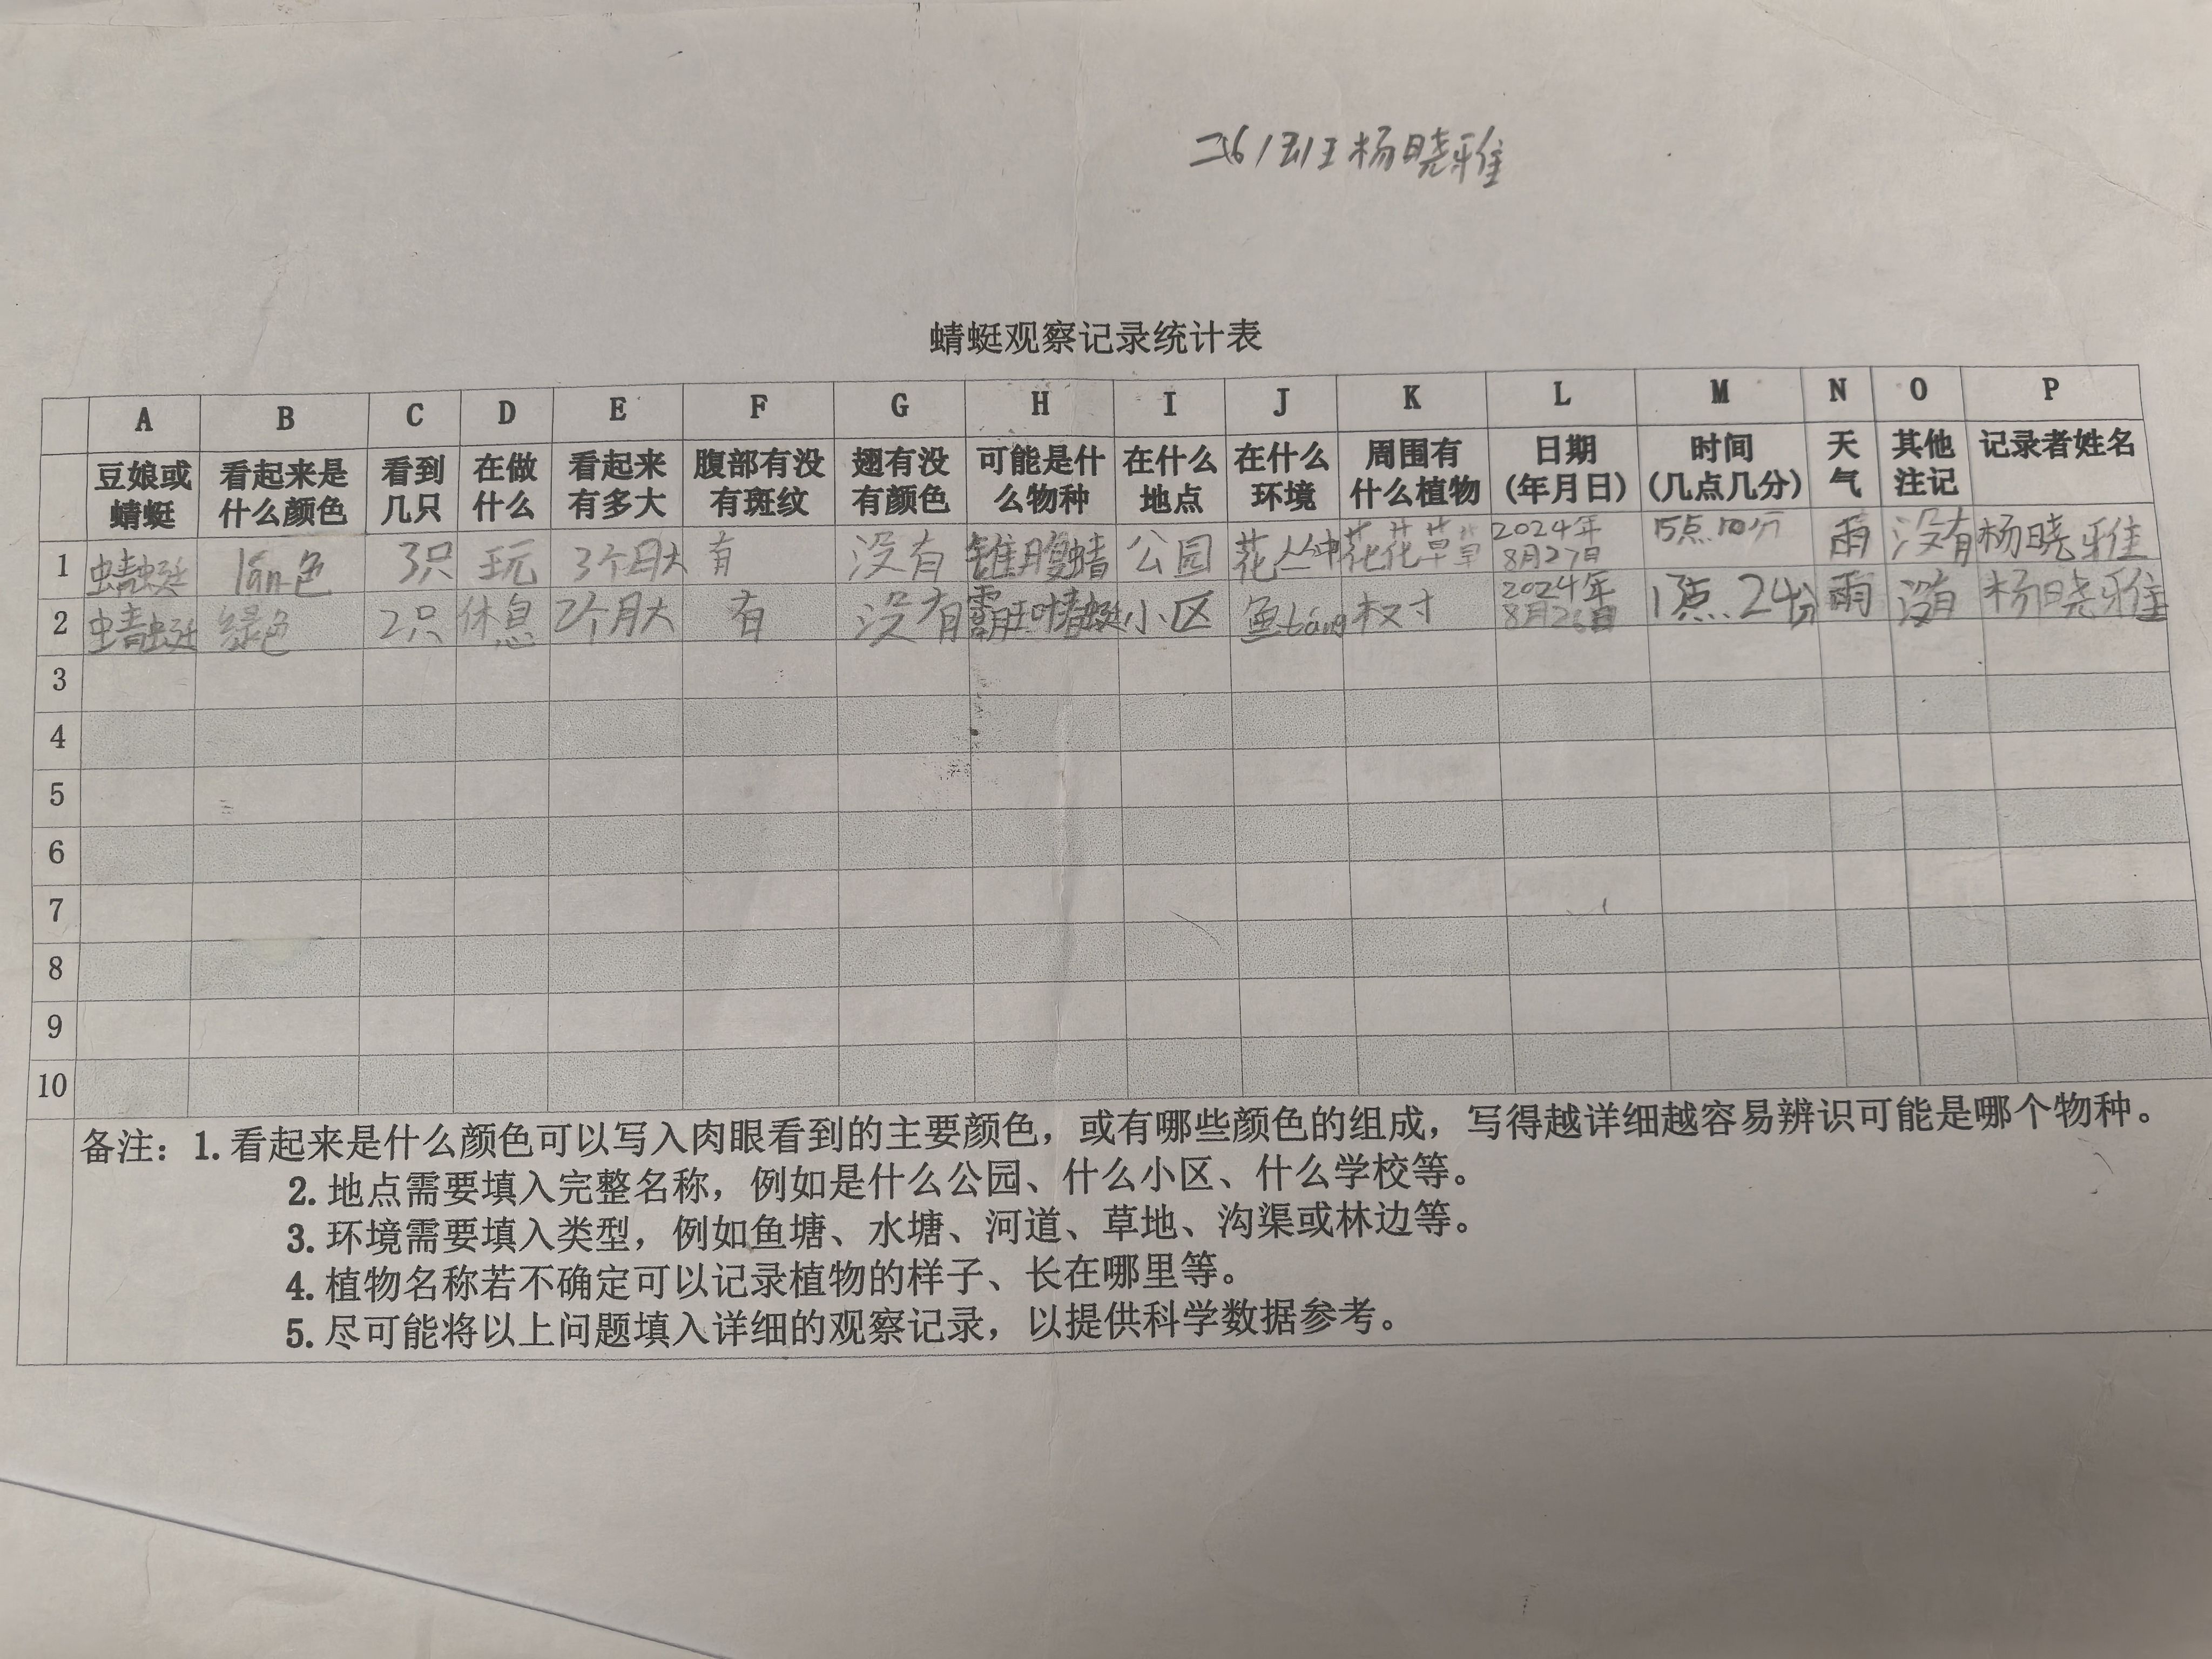 二(6)班 杨晓雅
蜻蜓观察记录统计表
A B C D E F G H I J K L M N O P
豆娘或蜻蜓 看起来是什么颜色 看到几只 在做什么 看起来有多大 腹部有没有斑纹 翅有没有颜色 可能是什么物种 在什么地点 在什么环境 周围有什么植物 日期(年月日) 时间(几点几分) 天气 其他注记 记录者姓名
1 蜻蜓 lán色 3只 玩 3个月大 有 没有 锥腹蜻 公园 花丛中 花花草草 2024年8月27日 15点10分 雨 没有 杨晓雅
2 蜻蜓 绿色 2只 休息 2个月大 有 没有 霸王叶春蜓 小区 鱼táng 2024年8月26日 24分 雨 没有 杨晓雅
3
4
5
6
7
8
9
10
备注：1.看起来是什么颜色可以写入肉眼看到的主要颜色，或有哪些颜色的组成，写得越详细越容易辨识可能是哪个物种。
2.地点需要填入完整名称，例如是什么公园、什么小区、什么学校等。
3.环境需要填入类型，例如鱼塘、水塘、河道、草地、沟渠或林边等。
4.植物名称若不确定可以记录植物的样子、长在哪里等。
5.尽可能将以上问题填入详细的观察记录，以提供科学数据参考。